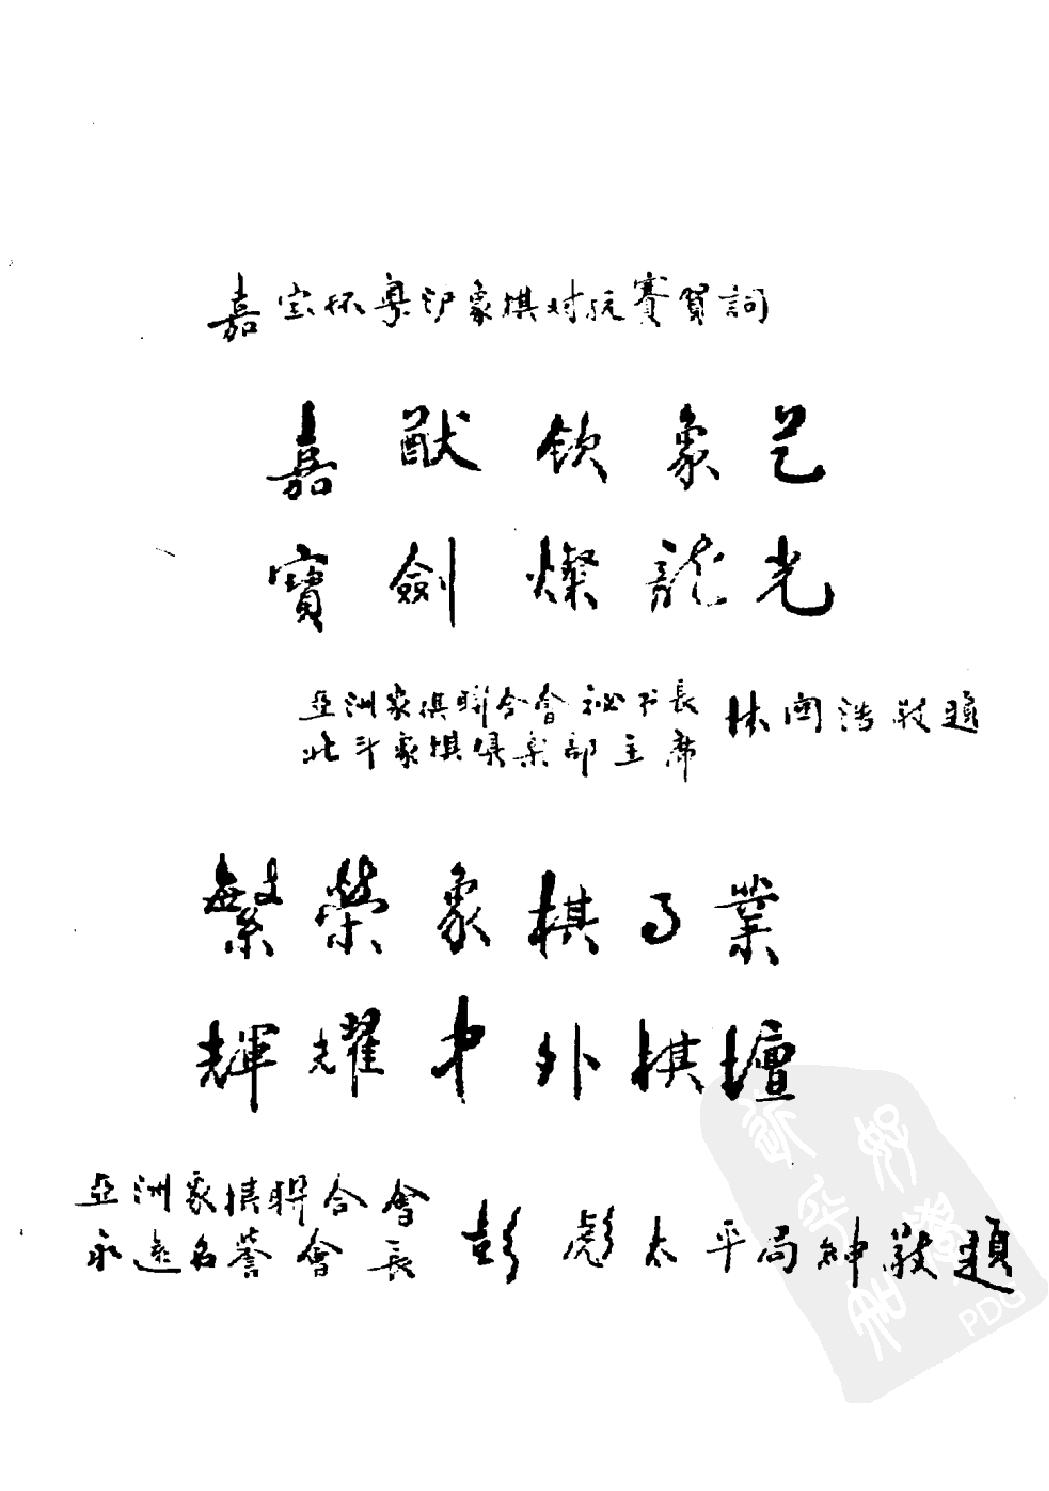 嘉宝杯粤沪象棋对抗赛賀詞
嘉猷欽象艺
寶劍燦龍光
亞洲象棋聯合會祕书長
北斗象棋俱楽部主席
林関浩敬題
繁榮象棋事業
輝耀中外棋壇
亞洲象棋聯合會
永遠名誉會長
彭彪太平局紳敬題
PDG